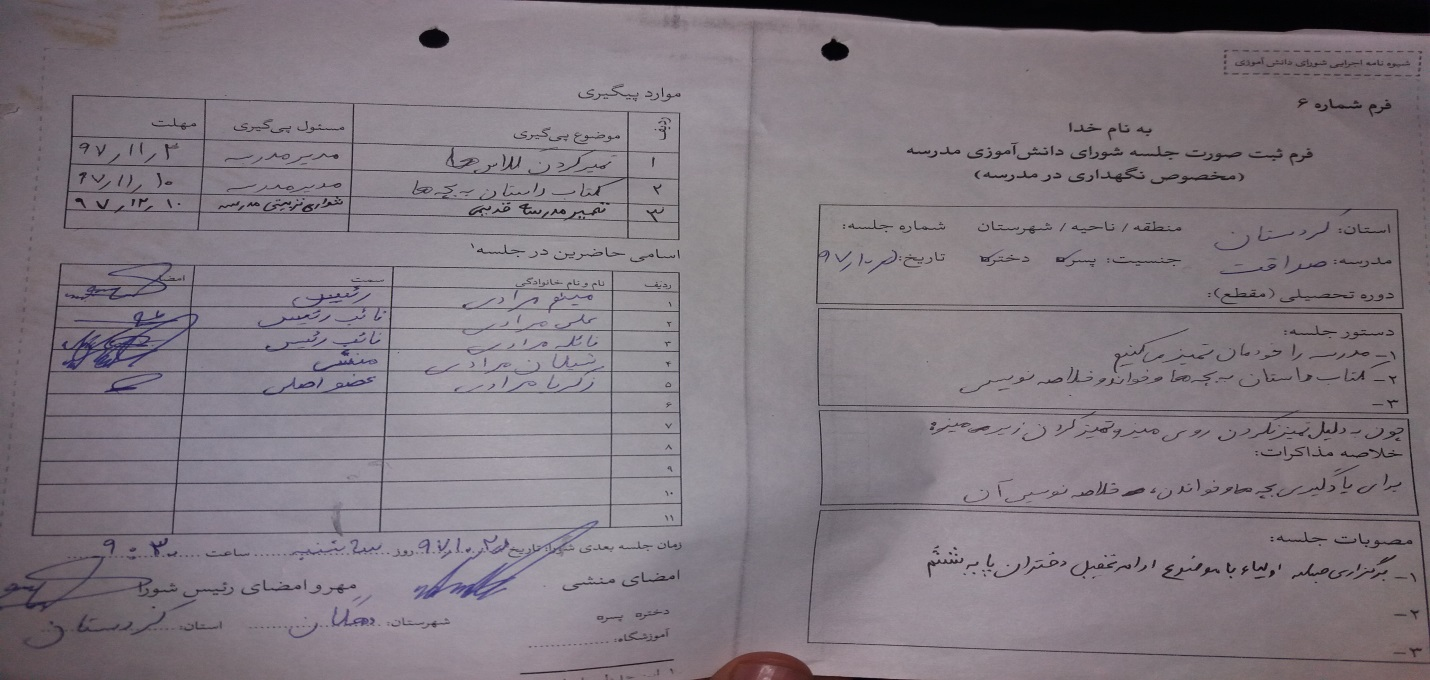 شیوه نامه اجرایی شورای دانش آموزی
فرم شماره ۶
به نام خدا
فرم ثبت صورت جلسه شورای دانش‌آموزی مدرسه
(مخصوص نگهداری در مدرسه)
استان: کردستان منطقه / ناحیه / شهرستان شماره جلسه:
مدرسه: صداقت جنسیت: پسره دختره تاریخ:
دوره تحصیلی (مقطع):
دستور جلسه:
۱- مدرسه را خودمان تمیز می کنیم
۲- کتاب داستان به بچه ها و خواند و خلاصه نویسی
۳-
چون به دلیل تمیز نکردن روی میز و تمیز کردن زیر میز
خلاصه مذاکرات:
برای یادگیری بچه ها و خواندن خلاصه نویسی آن
مصوبات جلسه:
۱- برگزاری جلسه اولیاء با موضوع ادامه تحصیل دختران پایه ششم
۲-
۳-
موارد پیگیری
ردیف موضوع پی‌گیری مسئول پی‌گیری مهلت
۱ تمیز کردن کلاس ها مدیر مدرسه ۹۷/۱۱/۳
۲ کتاب داستان به بچه ها مدیر مدرسه ۹۷/۱۱/۱۰
۳ تعمیر مدرسه قدیمی شورای تربیتی مدرسه ۹۷/۱۲/۱۰
اسامی حاضرین در جلسه:
ردیف نام و نام خانوادگی سمت امضا
۱ مرادی رئیس
۲ علی مرادی نائب رئیس
۳ مرادی نائب رئیس
۴ مرادی منشی
۵ زکریا مرادی عضو اصلی
۶
۷
۸
۹
۱۰
۱۱
زمان جلسه بعدی شورا: تاریخ روز سه شنبه ساعت ۹:۳۰
امضای منشی مهر و امضای رئیس شورا
دختره پسره شهرستان: دهگلان استان: کردستان
آموزشگاه: